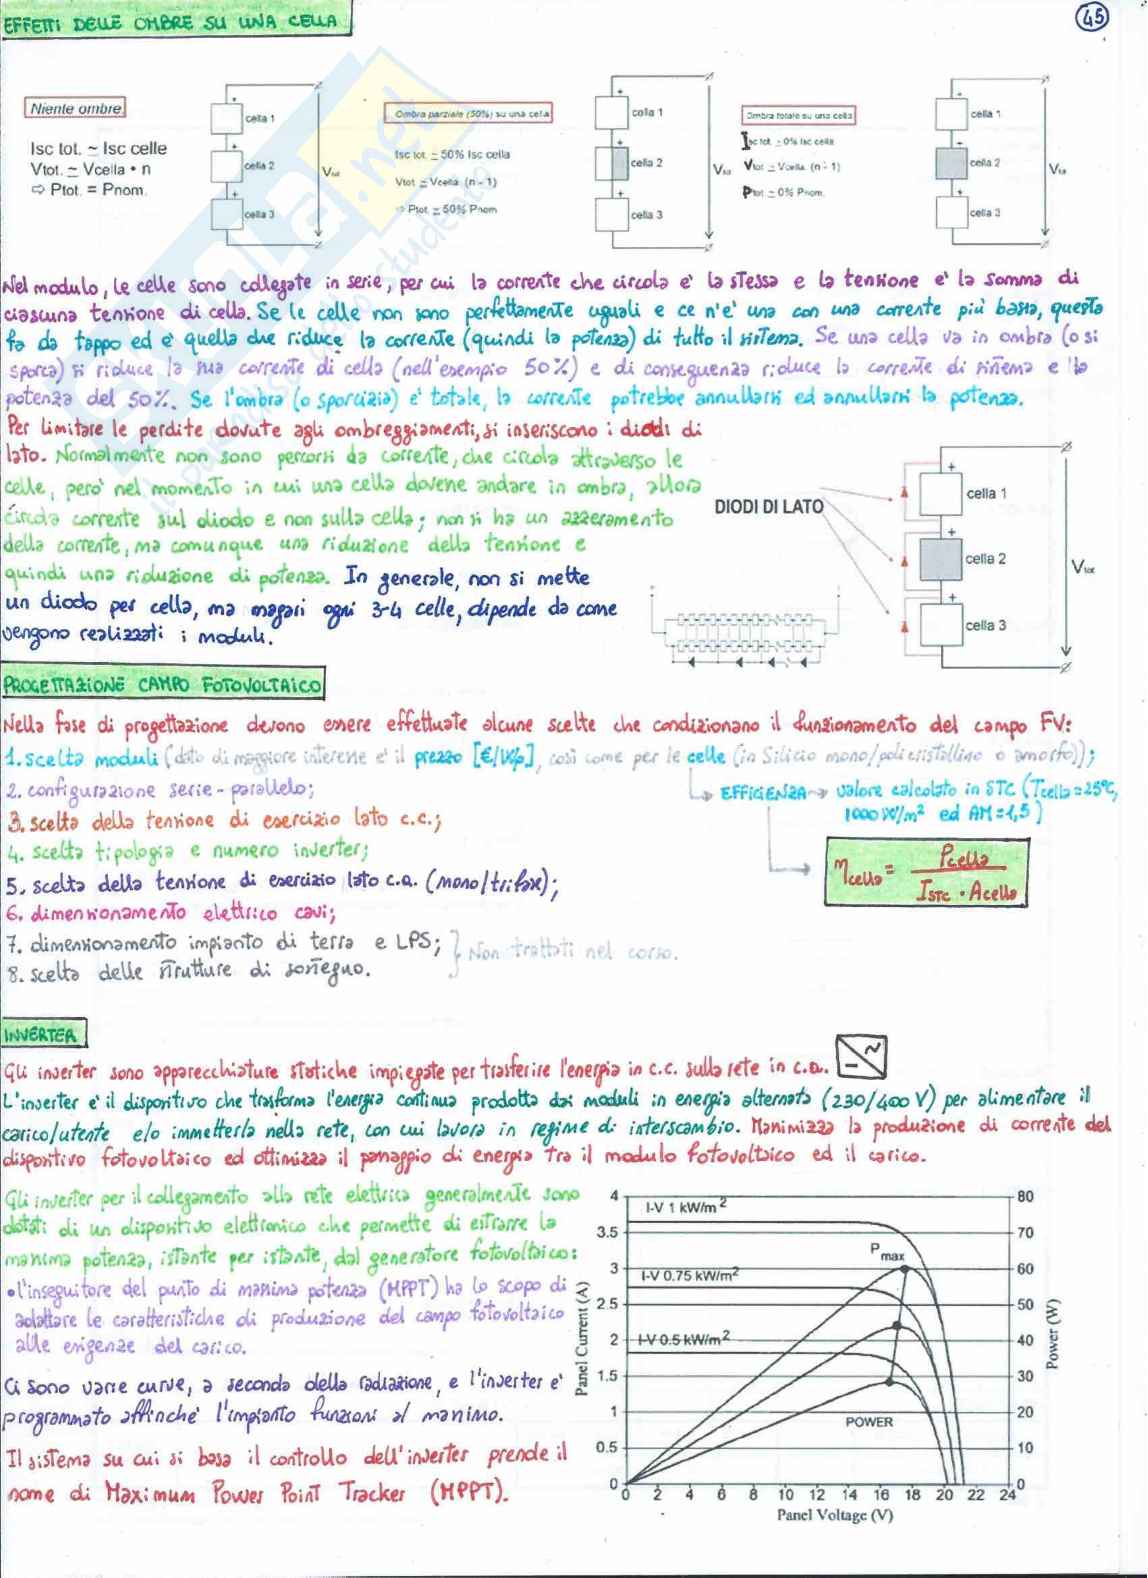 EFFETTI DELLE OMBRE SU UNA CELLA
45
Niente ombre
Isc tot. ~ Isc celle
Vtot. ~ Vcella • n
⇨ Ptot. = Pnom.
cella 1
cella 2
cella 3
Vtot
Ombra parziale (50%) su una cella
Isc tot. ~ 50% Isc cella
Vtot ~ Vcella (n - 1)
⇨ Ptot. ~ 50% Pnom
cella 1
cella 2
cella 3
Vtot
Ombra totale su una cella
Isc tot. ~ 0% Isc cella
Vtot ~ Vcella. (n - 1)
Ptot. ~ 0% Pnom.
cella 1
cella 2
cella 3
Vtot
Nel modulo, le celle sono collegate in serie, per cui la corrente che circola e' la stessa e la tensione e' la somma di
ciascuna tensione di cella. Se le celle non sono perfettamente uguali e ce n'e' una con una corrente più bassa, questa
fa da tappo ed è quella che riduce la corrente (quindi la potenza) di tutto il sistema. Se una cella va in ombra (o si
sporca) si riduce la sua corrente di cella (nell'esempio 50%) e di conseguenza riduce la corrente di sistema e la
potenza del 50%. Se l'ombra (o sporcizia) e' totale, la corrente potrebbe annullarsi ed annullarsi la potenza.
Per limitare le perdite dovute agli ombreggiamenti, si inseriscono i diodi di
lato. Normalmente non sono percorsi da corrente, che circola attraverso le
celle, però nel momento in cui una cella dovesse andare in ombra, allora
circola corrente sul diodo e non sulla cella; non si ha un azzeramento
della corrente, ma comunque una riduzione della tensione e
quindi una riduzione di potenza. In generale, non si mette
un diodo per cella, ma magari ogni 3-4 celle, dipende da come
vengono realizzati i moduli.
DIODI DI LATO
cella 1
cella 2
cella 3
Vtot
PROGETTAZIONE CAMPO FOTOVOLTAICO
Nella fase di progettazione devono essere effettuate alcune scelte che condizionano il funzionamento del campo FV:
1. scelta moduli (dato di maggiore interesse e' il prezzo [€/Wp], così come per le celle (in Silicio mono/policristallino o amorfo));
2. configurazione serie-parallelo;
3. scelta della tensione di esercizio lato c.c.;
4. scelta tipologia e numero inverter;
5. scelta della tensione di esercizio lato c.a. (mono/trifase);
6. dimensionamento elettrico cavi;
7. dimensionamento impianto di terra e LPS;
8. scelta delle strutture di sostegno.
Non trattati nel corso.
EFFICIENZA → valore calcolato in STC (Tcella = 25°C,
1000 W/m² ed AM = 1,5)
ηcella = Pcella / ISTC · Acella
INVERTER
Gli inverter sono apparecchiature statiche impiegate per trasferire l'energia in c.c. sulla rete in c.a.
L'inverter e' il dispositivo che trasforma l'energia continua prodotta dai moduli in energia alternata (230/400 V) per alimentare il
carico/utente e/o immetterla nella rete, con cui lavora in regime di interscambio. Massimizza la produzione di corrente del
dispositivo fotovoltaico ed ottimizza il passaggio di energia tra il modulo fotovoltaico ed il carico.
Gli inverter per il collegamento alla rete elettrica generalmente sono
dotati di un dispositivo elettronico che permette di estrarre la
massima potenza, istante per istante, dal generatore fotovoltaico:
• l'inseguitore del punto di massima potenza (MPPT) ha lo scopo di
adattare le caratteristiche di produzione del campo fotovoltaico
alle esigenze del carico.
Ci sono varie curve, a seconda della radiazione, e l'inverter e'
programmato affinche' l'impianto funzioni al massimo.
Il sistema su cui si basa il controllo dell'inverter prende il
nome di Maximum Power Point Tracker (MPPT).
I-V 1 kW/m²
I-V 0.75 kW/m²
I-V 0.5 kW/m²
Pmax
POWER
Panel Current (A)
4
3.5
3
2.5
2
1.5
1
0.5
0
80
70
60
50
40
30
20
10
0
Power (W)
0 2 4 6 8 10 12 14 16 18 20 22 24
Panel Voltage (V)
SKUOLA.net